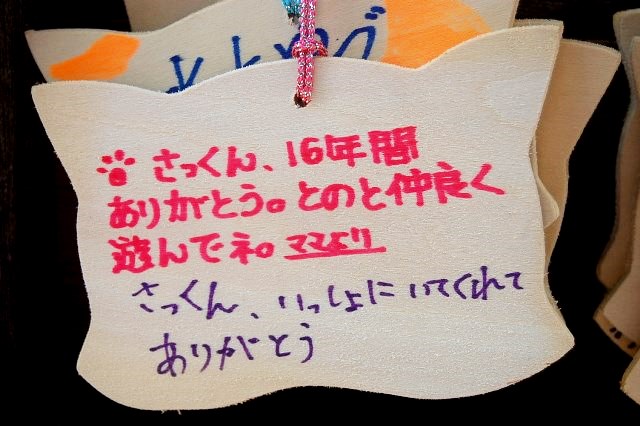 さっくん、16年間
ありがとう。とのと仲良く
遊んでネ。ママより
さっくん、いっしょにいてくれて
ありがとう